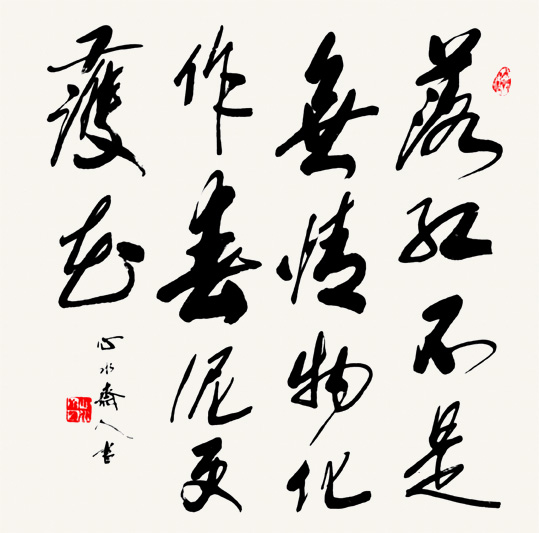 落红不是
無情物化
作春泥更
護花
心水斋人书